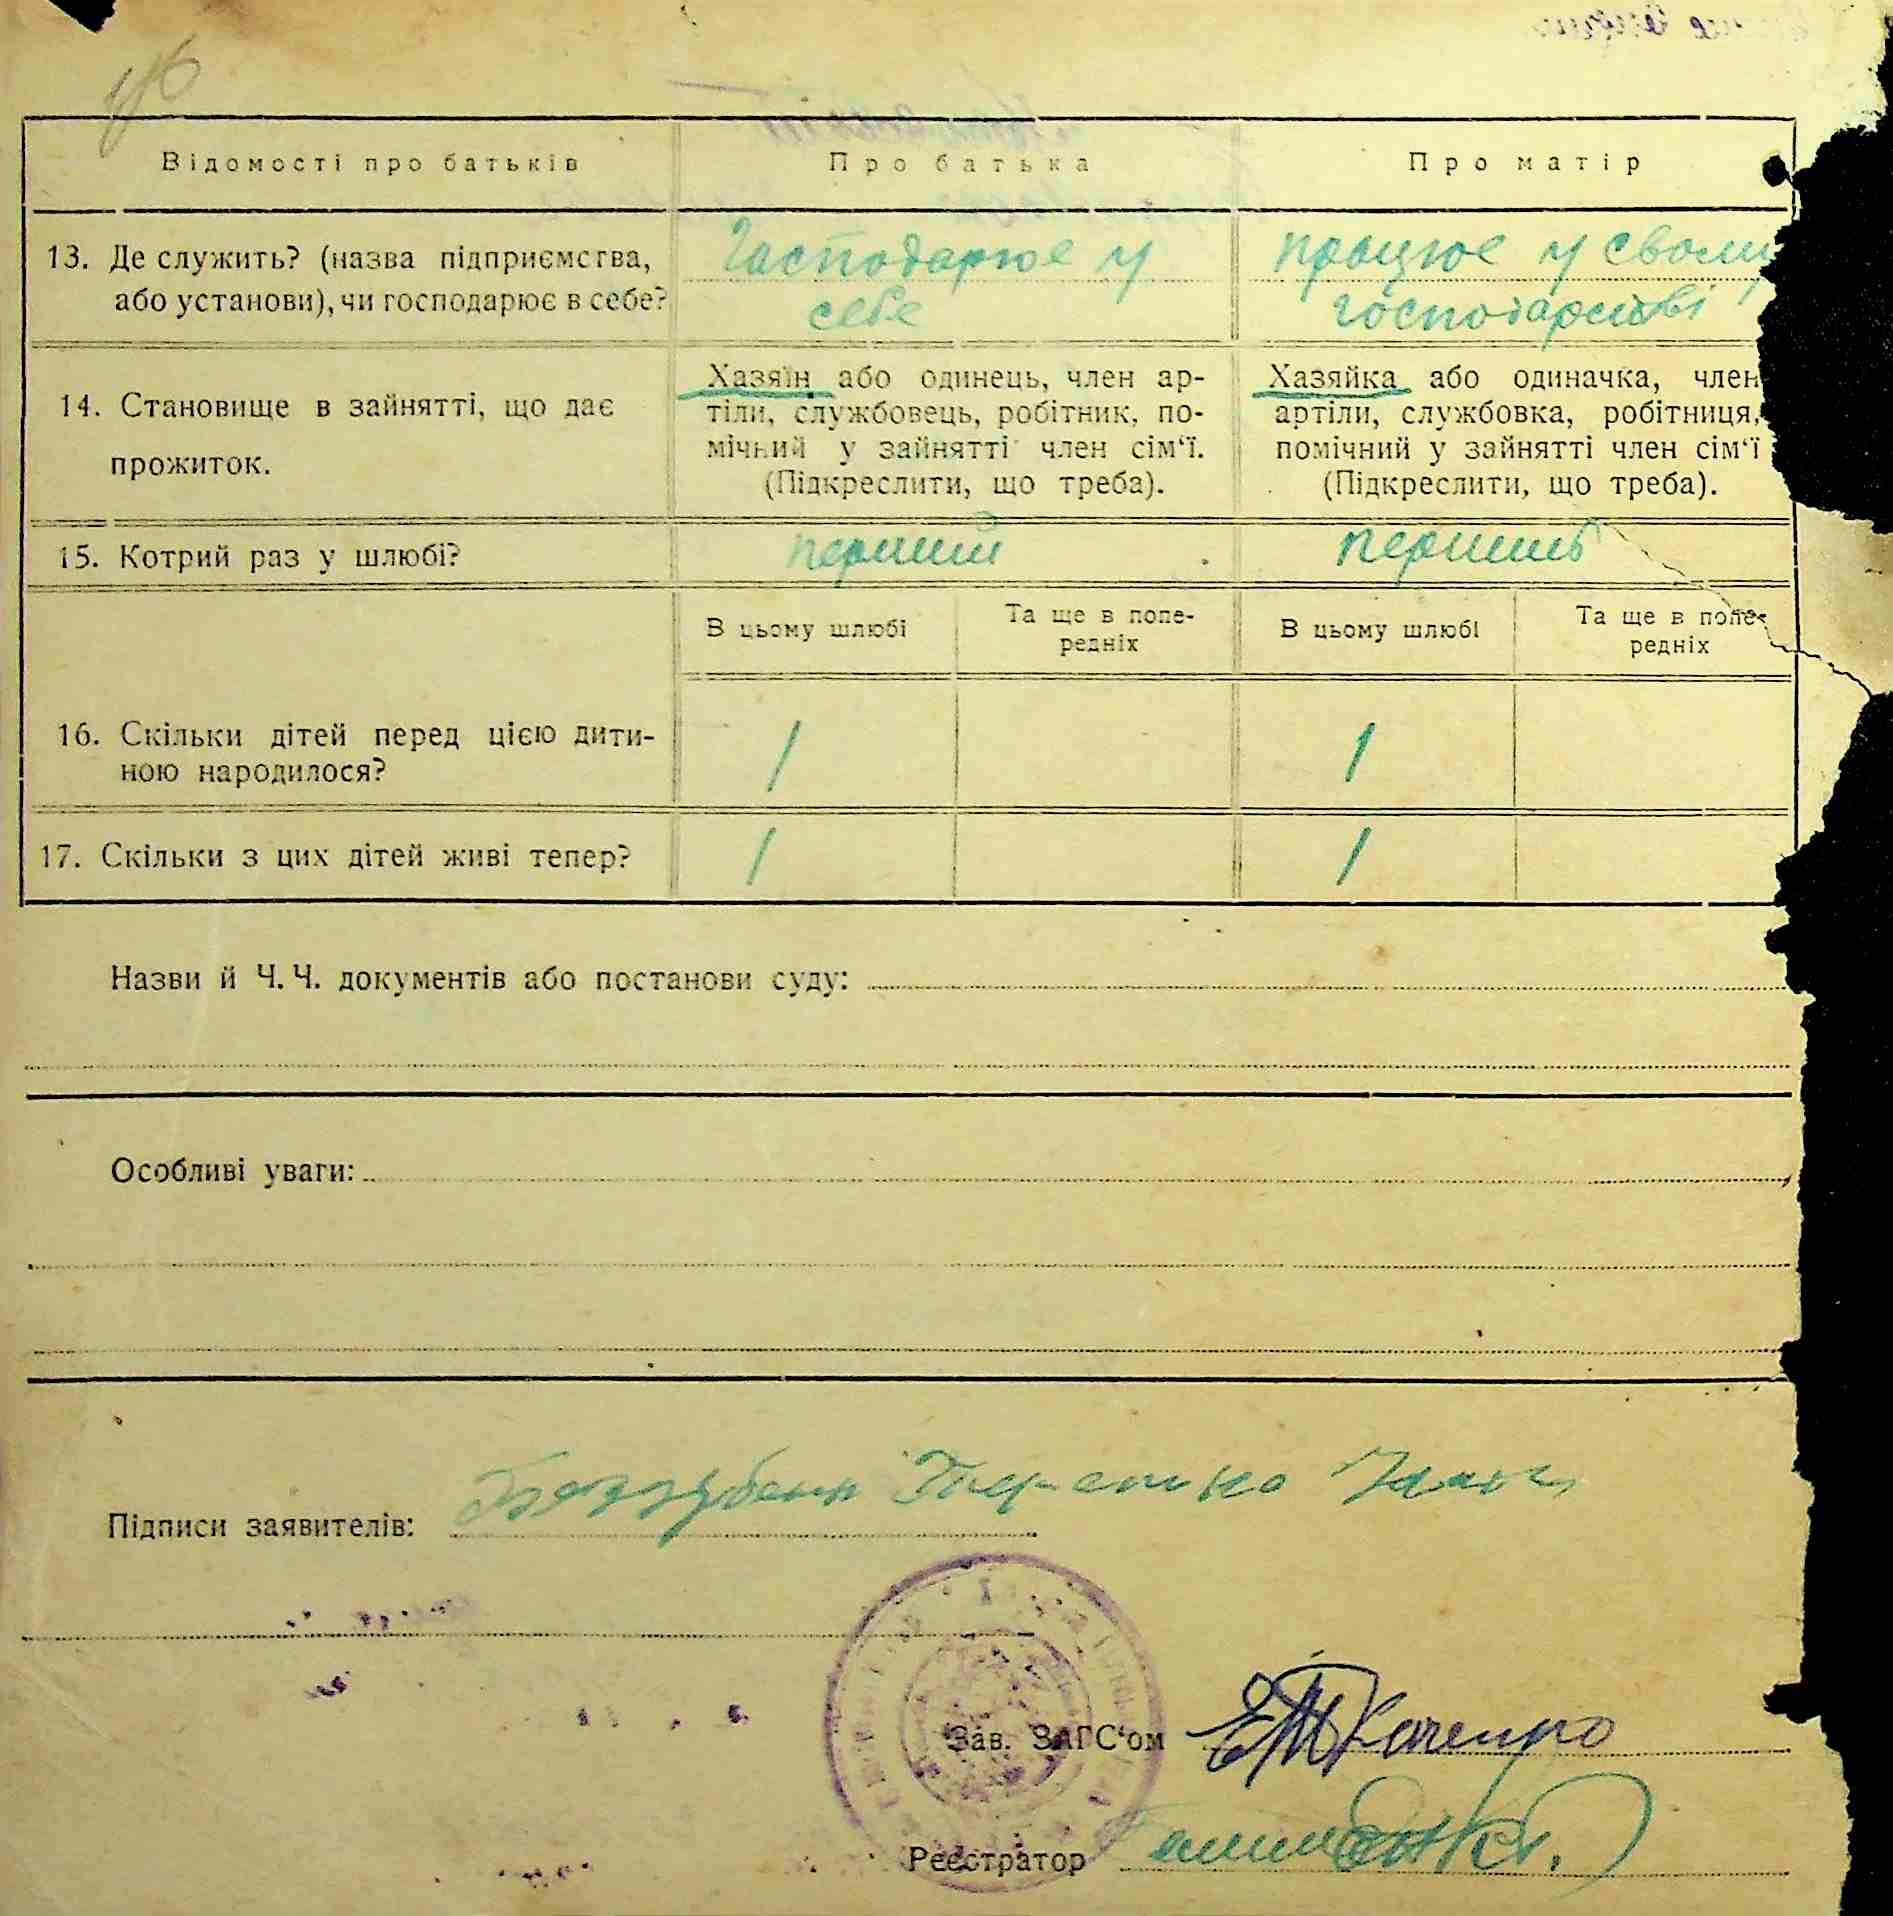 Відомості про батьків
Про батька
Про матір
13. Де служить? (назва підприємства,
або установи), чи господарює в себе?
Господарює у
себе
працює у своєму
господарстві
14. Становище в зайнятті, що дає
прожиток.
Хазяїн або одинець, член ар-
тіли, службовець, робітник, по-
мічний у зайнятті член сім‘ї.
(Підкреслити, що треба).
Хазяйка або одиначка, член
артіли, службовка, робітниця,
помічний у зайнятті член сім‘ї
(Підкреслити, що треба).
15. Котрий раз у шлюбі?
перший
перший
В цьому шлюбі
Та ще в попе-
редніх
В цьому шлюбі
Та ще в попе-
редніх
16. Скільки дітей перед цією дити-
ною народилося?
1
1
17. Скільки з цих дітей живі тепер?
1
1
Назви й Ч. Ч. документів або постанови суду:
Особливі уваги:
Підписи заявителів:
Зав. ЗАГС‘ом ЕТкаченко
Реєстратор